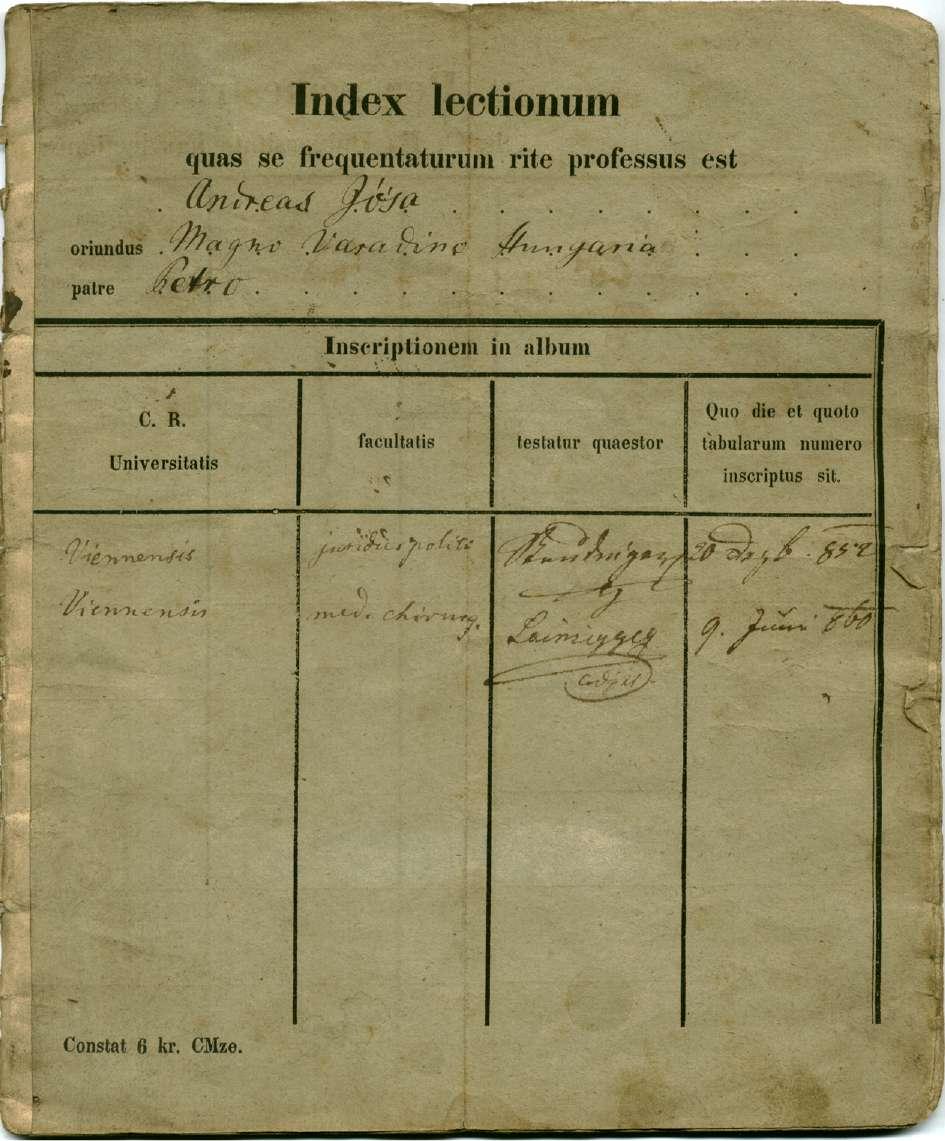 Index lectionum
quas se frequentaturum rite professus est
Andreas Jósa
oriundus Magno Varadino Hungaria
patre Petro
Inscriptionem in album
C. R.
Universitatis
facultatis
testatur quaestor
Quo die et quoto
tabularum numero
inscriptus sit.
Viennensis 20 Dezb. 852
Viennensis med. chirurg. 9. Juni 860
Constat 6 kr. CMze.